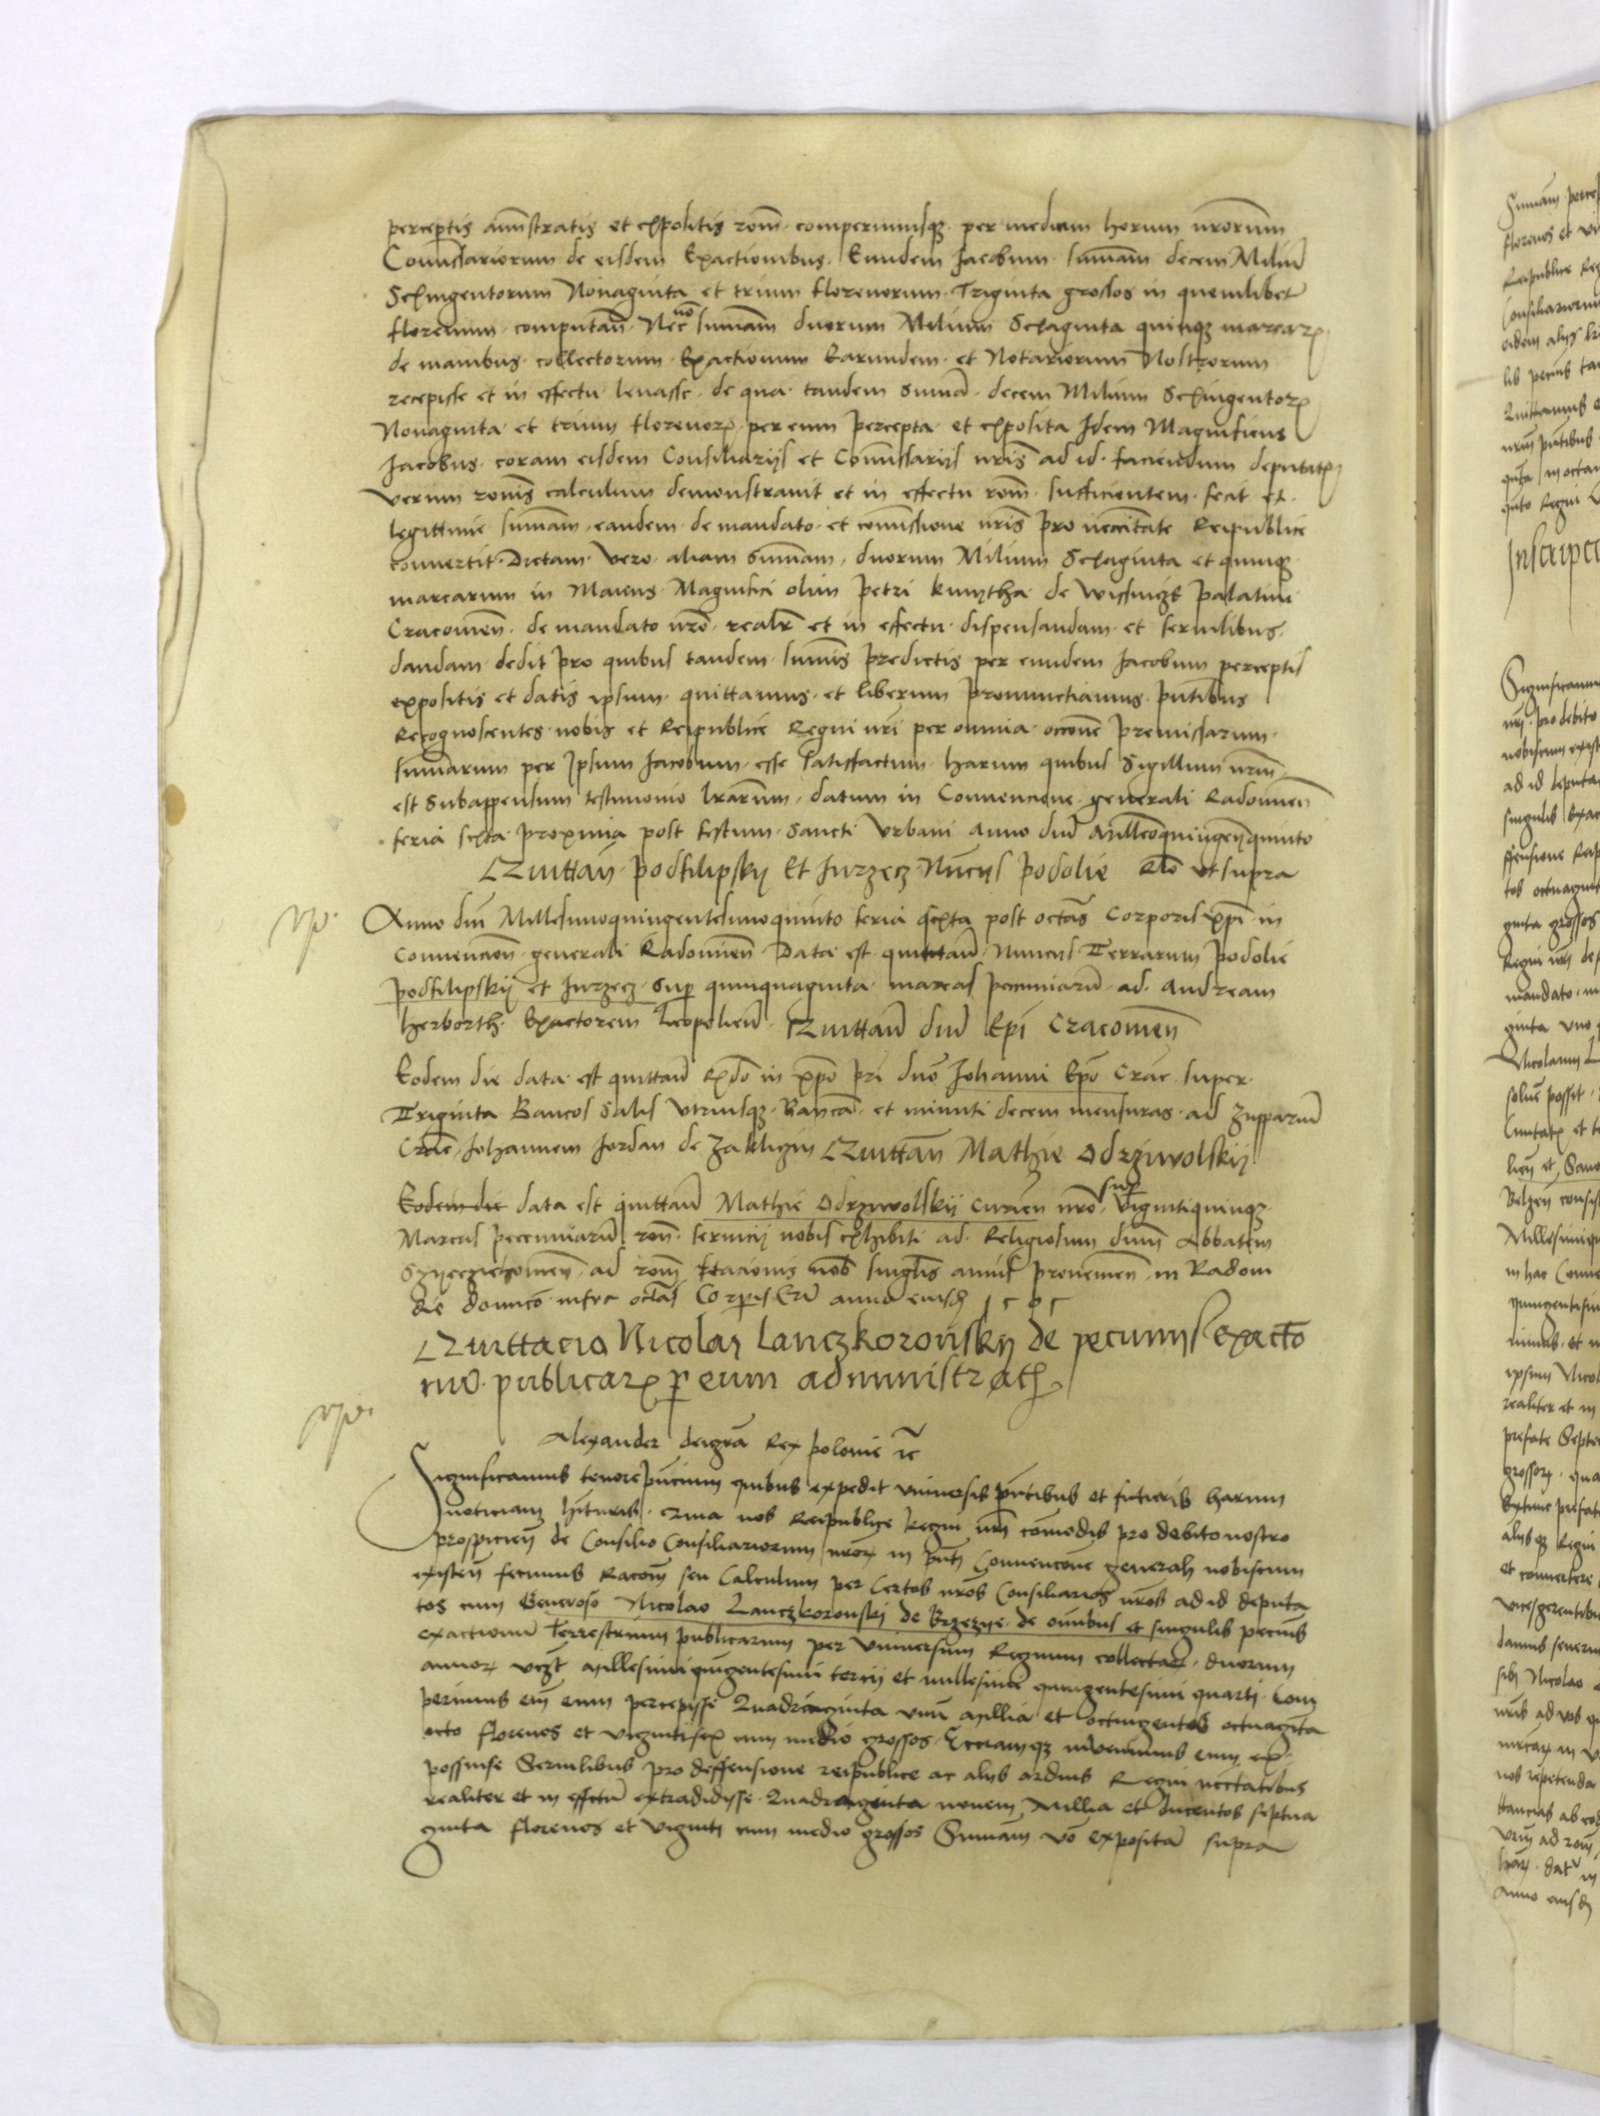 perceptis ammstratis et expositis rom comperimusq per medium horum nrorum
Comissariorum de eisdem Exactionibus. Eundem Jacobum sumam decem Miliu
Sexingentorum Nonaginta et trium florenorum Triginta grossos in quemlibet
florenum computan Nec no sumam duorum Milium Sexaginta quinq marcar
de manibus collectorum Exactionum Earundem et Notariorum Nostrorum
recepisse et in effectu levasse de qua tandem Suma decem Milium Sexingentor
Nonaginta et trium florenor per eum percepta et exposita Idem Magnificus
Jacobus coram eisdem Consiliarijs et Comissarijs nris ad id faciendum deputat
verum ronis calculum demonstravit et in effectu rom sufficientem fecit et
legittime sumam eandem de mandato et comissione nris pro necitate Reipublice
convertit Dictam vero aliam Sumam duorum Milium Sexaginta et quinq
marcarum in Manus Magnifici olim Petri kmytha de Wissnicze palatini
Cracovien de mandato nro realr et in effectu dispensandam et servilibus
dandam dedit pro quibus tandem sumis predictis per eundem Jacobum perceptis
expositis et datis ipsum quittamus et liberum pronunctiamus pntibus
Recognoscentes nobis et Reipublice Regni nri per omnia occone premissarum
sumarum per Ipsum Jacobum esse satisfactum harum quibus Sigillum nrm
est Subappensum testimonio lrarum datum in Convencione generali Radomien
feria sexta proxima post festum Sancti Urbani Anno dni Millesimoquingenquinto
Quittan podfilipskij Et Jurzecz Nuncys podolie Rlo ut supra
Anno dni Millesimoquingentesimoquinto feria sexta post octas Corporis xpi in
Convencion generali Radomien Data est quittan Nuncys Terrarum podolie
podfilipskij et Jurzecz Sup quinquaginta marcas pecuniaru ad Andream
herborth Exactorem Leopolien Quittan dni Epi Cracovien
Eodem die data est quittan Rdo in xpo pri dno Johanni Epo Crac super
Triginta Bancos Salis utriusq Banca et minuti decem mensuras ad zuppariu
Crac Johannem Jordan de Zakliczin Quittan Mathie Odrziwolskij
Eodem die data est quittan Mathie Odrzivolskij Curien nro sup Vigintiquinq
Marcas pecuniaru ron servicij nobis exhibiti ad Religiosum dnm Abbatem
Szyeczechovien ad rom stacionis nob singlis annis provenien in Radom
die domico infra octas Corporis Cri anno eiusd 1505
Quittacio Nicolai Lanczkoronskij de pecunijs exactio
nu publicar p eum administrat
Alexander deigra Rex polonie rc
Significamus tenore pncium quibus expedit Universis pntibus et futuris harum
noticiam hituris Quia nos Reipublice Regni nri comodis pro debito nostro
prospicien de Consilio Consiliariorum nror in pnti Convencone generali nobiscum
existen fecimus Racom seu Calculum per Certos nros Consiliarios nros ad id deputa
tos cum Generoso Nicolao Lanczkoronskij de Brzezye de omibus et singulis pecunis
exactionu Terrestrium publicarum per Universum Regnum collectar duorum
annor vczt Millesimiquigentesimi tercij et millesimi quingentesimi quarti Com
perimus eni eum percepisse Quadraginta unu Millia et octingentos octuaginta
octo florenos et Vigintisex cum medio grossos Ecciamq invenimus eum ex
posuisse Servilibus pro deffensione reipublice ac alijs arduis Regni necitatibus
realiter et in effectu extradidisse Quadraginta novem Millia et Ducentos septua
ginta florenos et Viginti cum medio grossos Sumam vo exposita supra